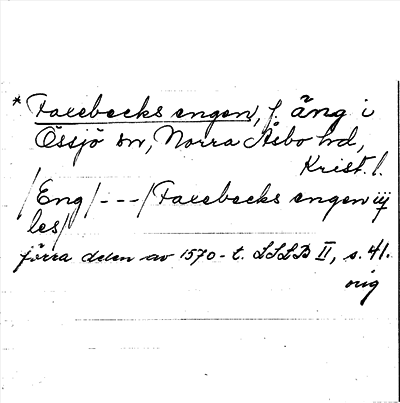 * Faxebecks engen, f. äng i
Össjö sn, Norra Åsbo hd,
Krist. l.
/Eng/ - - - /Faxebecks engen iij
les/
förra delen av 1570-t. LSLB II, s. 41.
orig